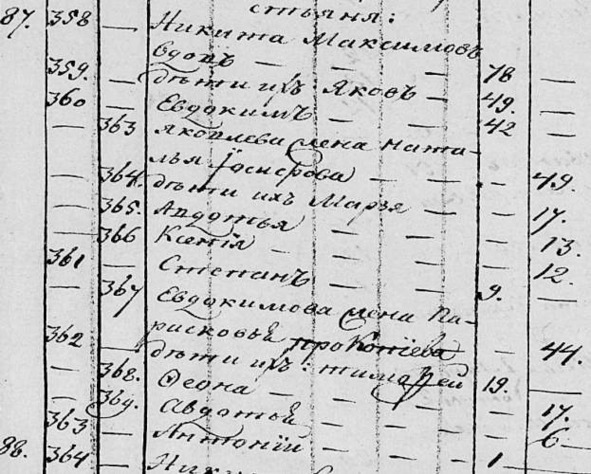 стьяня:
87. 358 — Никита Максимовъ
вдовъ — — — 78 —
359. — дѣти ихъ: Яковъ — 49. —
360 — Евдокимъ — — 42 —
— 363 Яковлева жена Ната-
лья Іосифова — — — 49.
— 364. дѣти ихъ Марья — — 17.
— 365. Авдотья — — — 13.
— 366 Ксенія — — — 12.
361 — Степанъ — — 9. —
— 367 Евдокимова жена Па-
расковья прокопіева — 44.
362 — дѣти ихъ: тимофей 19. —
— 368. Феона — — — 17.
— 369. Авдотья — — — 6
363 — Антоній — — 1 —
88. 364 —